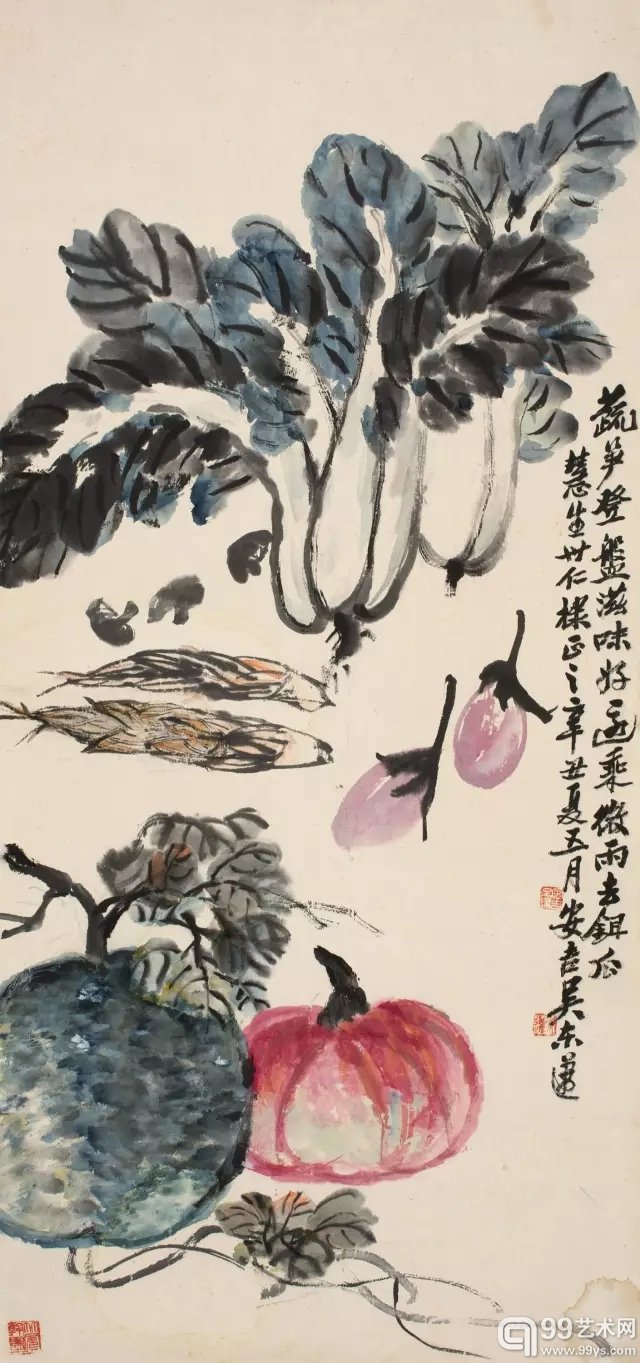 蔬笋登盤滋味好還乘微雨去鉏瓜
慧生世仁棣正之辛丑夏五月安吉吴东邁
99艺术网
www.99ys.com